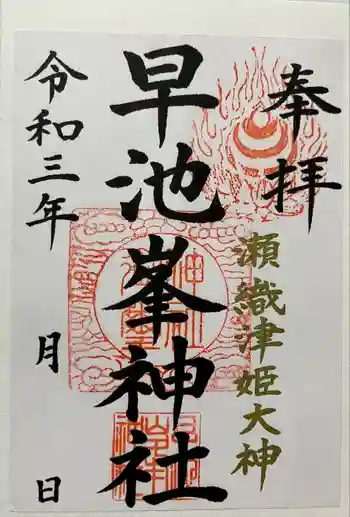 奉拝
瀬織津姫大神
早池峯神社
令和三年 月 日